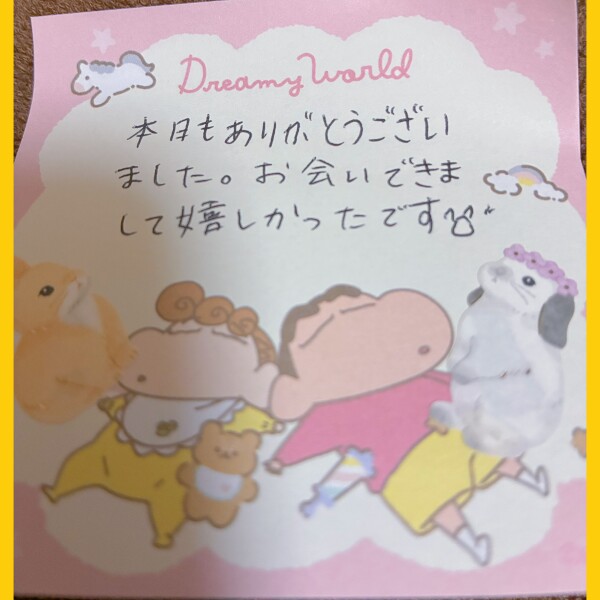 Dreamy World
本日もありがとうござい
ました。お会いできま
して嬉しかったです